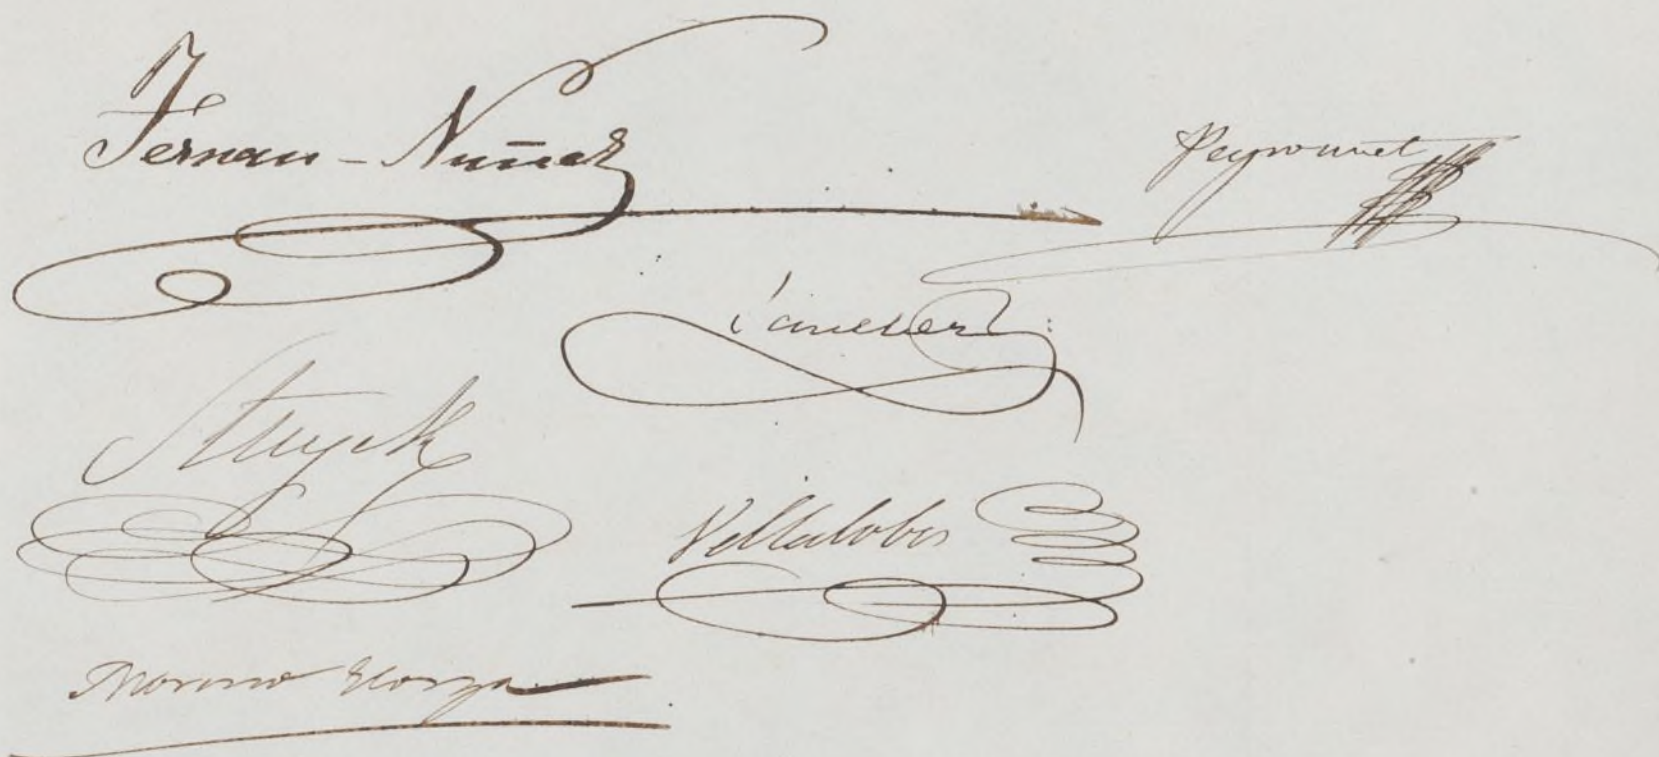 Fernan-Nuñez
Peyronnet
Sanchez
Stuyck
Villalobos
Moreno Elorza